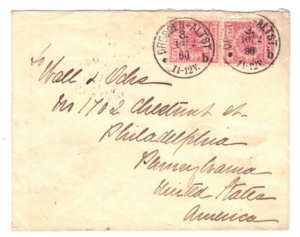 DRESDEN-ALTST.
3
90
11-12V.
b
DRESDEN-ALTST.
3
90
11-12V.
b
To
Wall & Ochs
No 1702 Chestnut St.
Philadelphia
Pennsylvania
United States
America